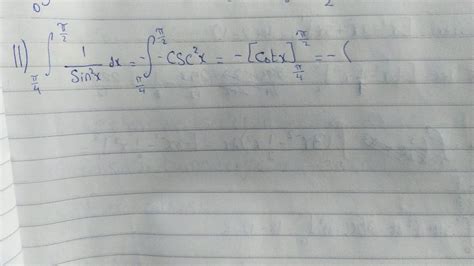 0 2
11) ∫_{π/4}^{π/2} 1/Sin²x dx = -∫_{π/4}^{π/2} -CSC²x = -[Cotx]_{π/4}^{π/2} = -(